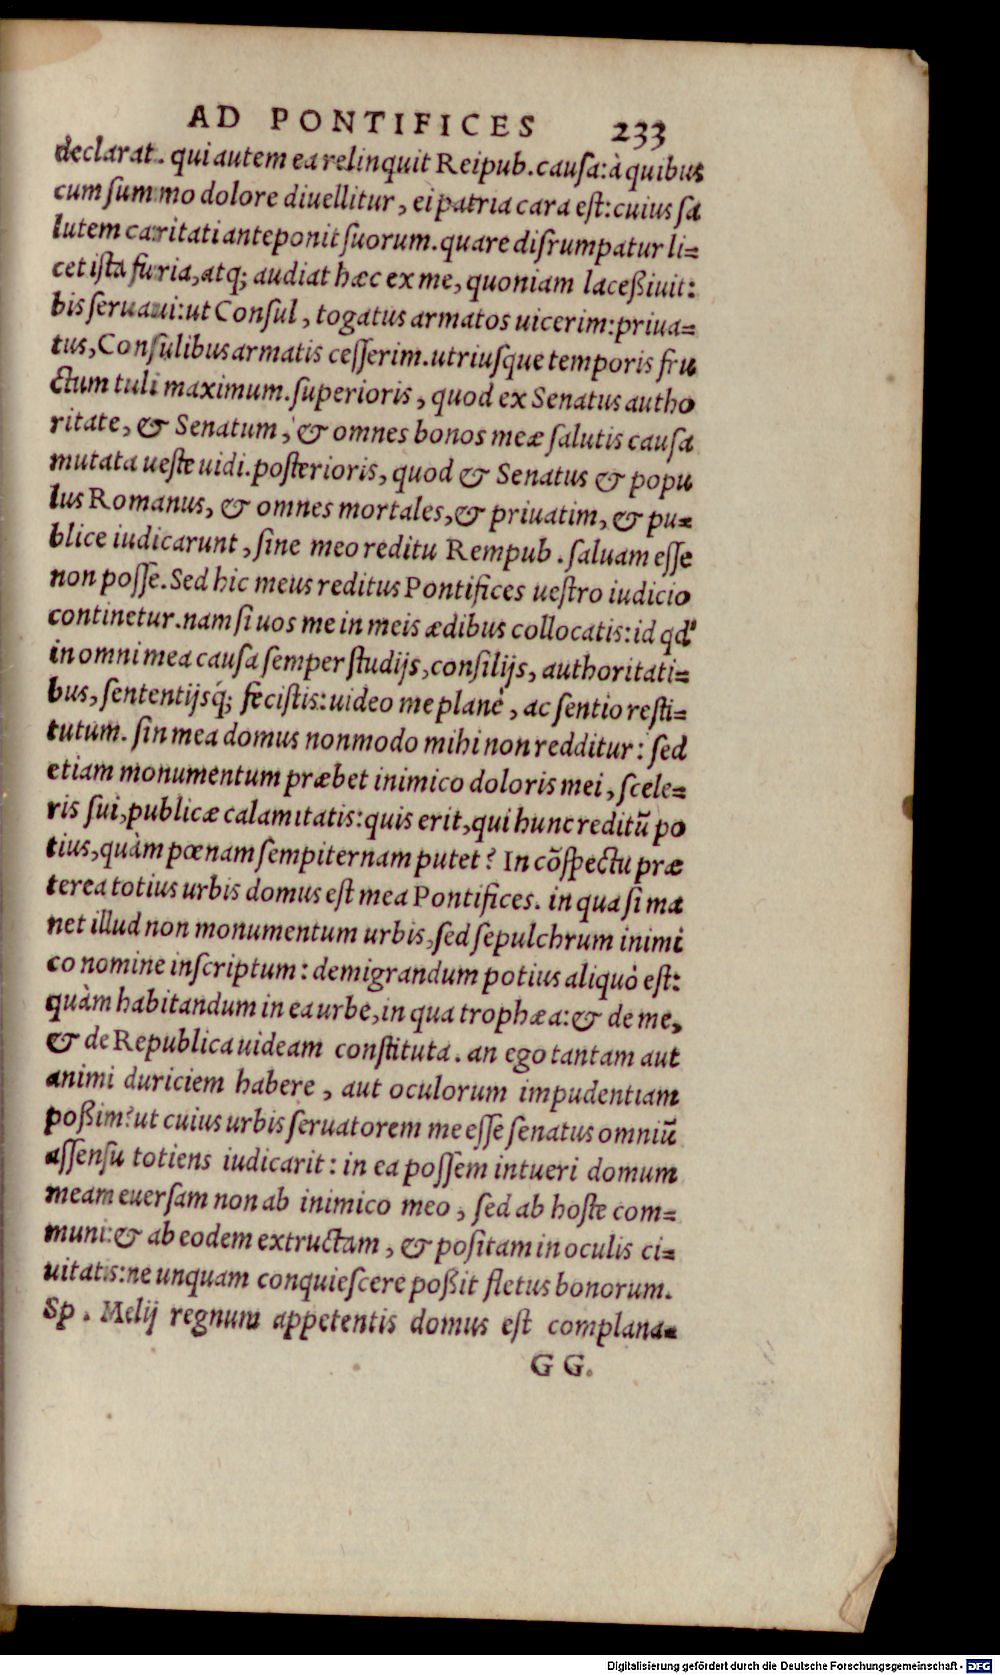 AD PONTIFICES 233
declarat. qui autem ea relinquit Reipub. causa: à quibus
cum summo dolore diuellitur, ei patria cara est: cuius sa
lutem caritati anteponit suorum. quare disrumpatur li=
cet ista furia, atq; audiat hæc ex me, quoniam laceßiuit:
bis seruaui: ut Consul, togatus armatos uicerim: priua=
tus, Consulibus armatis cesserim. utriusque temporis fru
ctum tuli maximum. superioris, quod ex Senatus autho
ritate, & Senatum, & omnes bonos meæ salutis causa
mutata ueste uidi. posterioris, quod & Senatus & popu
lus Romanus, & omnes mortales, & priuatim, & pu=
blice iudicarunt, sine meo reditu Rempub. saluam esse
non posse. Sed hic meus reditus Pontifices uestro iudicio
continetur. nam si uos me in meis ædibus collocatis: id qd'
in omni mea causa semper studijs, consilijs, authoritati=
bus, sententijsq́; fecistis: uideo me planè, ac sentio resti=
tutum. sin mea domus non modo mihi non redditur: sed
etiam monumentum præbet inimico doloris mei, scele=
ris sui, publicæ calamitatis: quis erit, qui hunc reditū po
tius, quàm pœnam sempiternam putet? In cōspectu præ
terea totius urbis domus est mea Pontifices. in qua si ma
net illud non monumentum urbis, sed sepulchrum inimi
co nomine inscriptum: demigrandum potius aliquò est:
quàm habitandum in ea urbe, in qua trophæa: & de me,
& de Republica uideam constituta. an ego tantam aut
animi duriciem habere, aut oculorum impudentiam
poßim? ut cuius urbis seruatorem me esse senatus omniū
assensu totiens iudicarit: in ea possem intueri domum
meam euersam non ab inimico meo, sed ab hoste com=
muni: & ab eodem extructam, & positam in oculis ci=
uitatis: ne unquam conquiescere poßit fletus bonorum.
Sp. Melij regnum appetentis domus est complana=
GG.
Digitalisierung gefördert durch die Deutsche Forschungsgemeinschaft - DFG